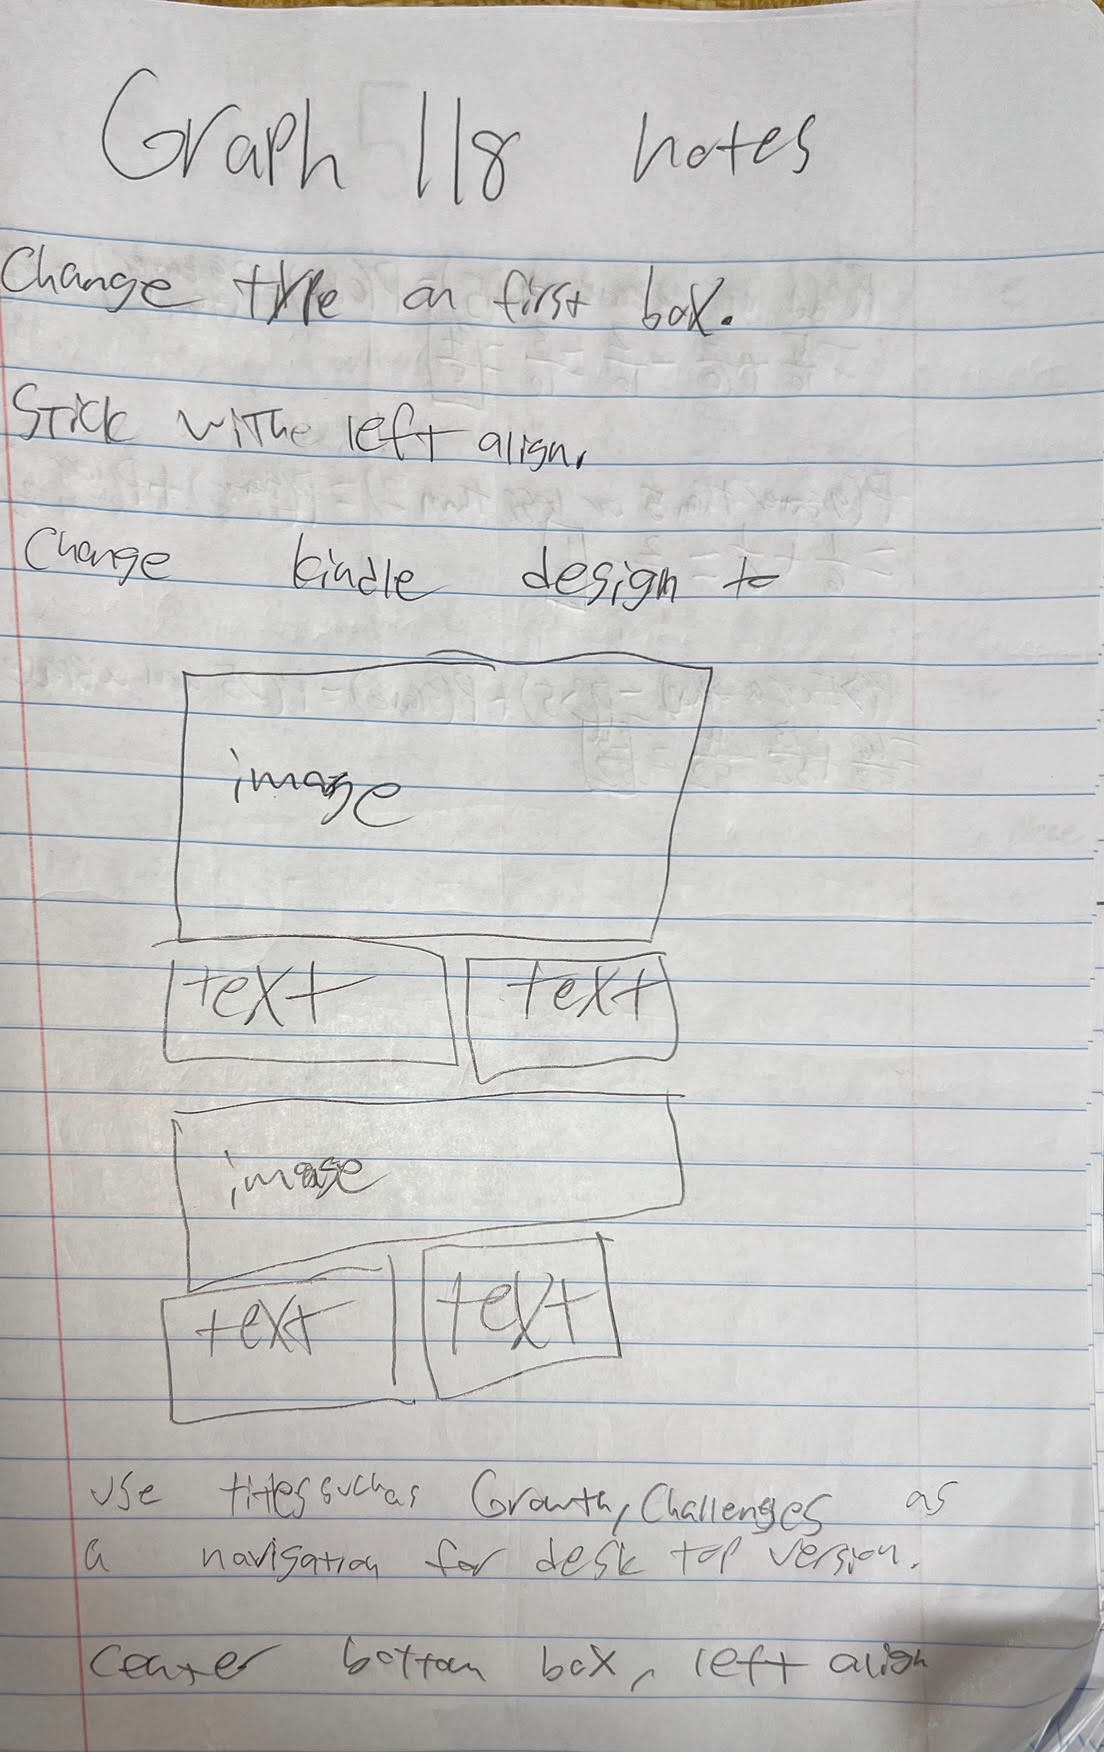 Graph 118 notes
Change type on first box.
Stick withe left align.
Change kindle design to
image
text text
image
text text
Use titles such as Growth, Challenges as
a navigation for desk top version.
Center bottom box, left align